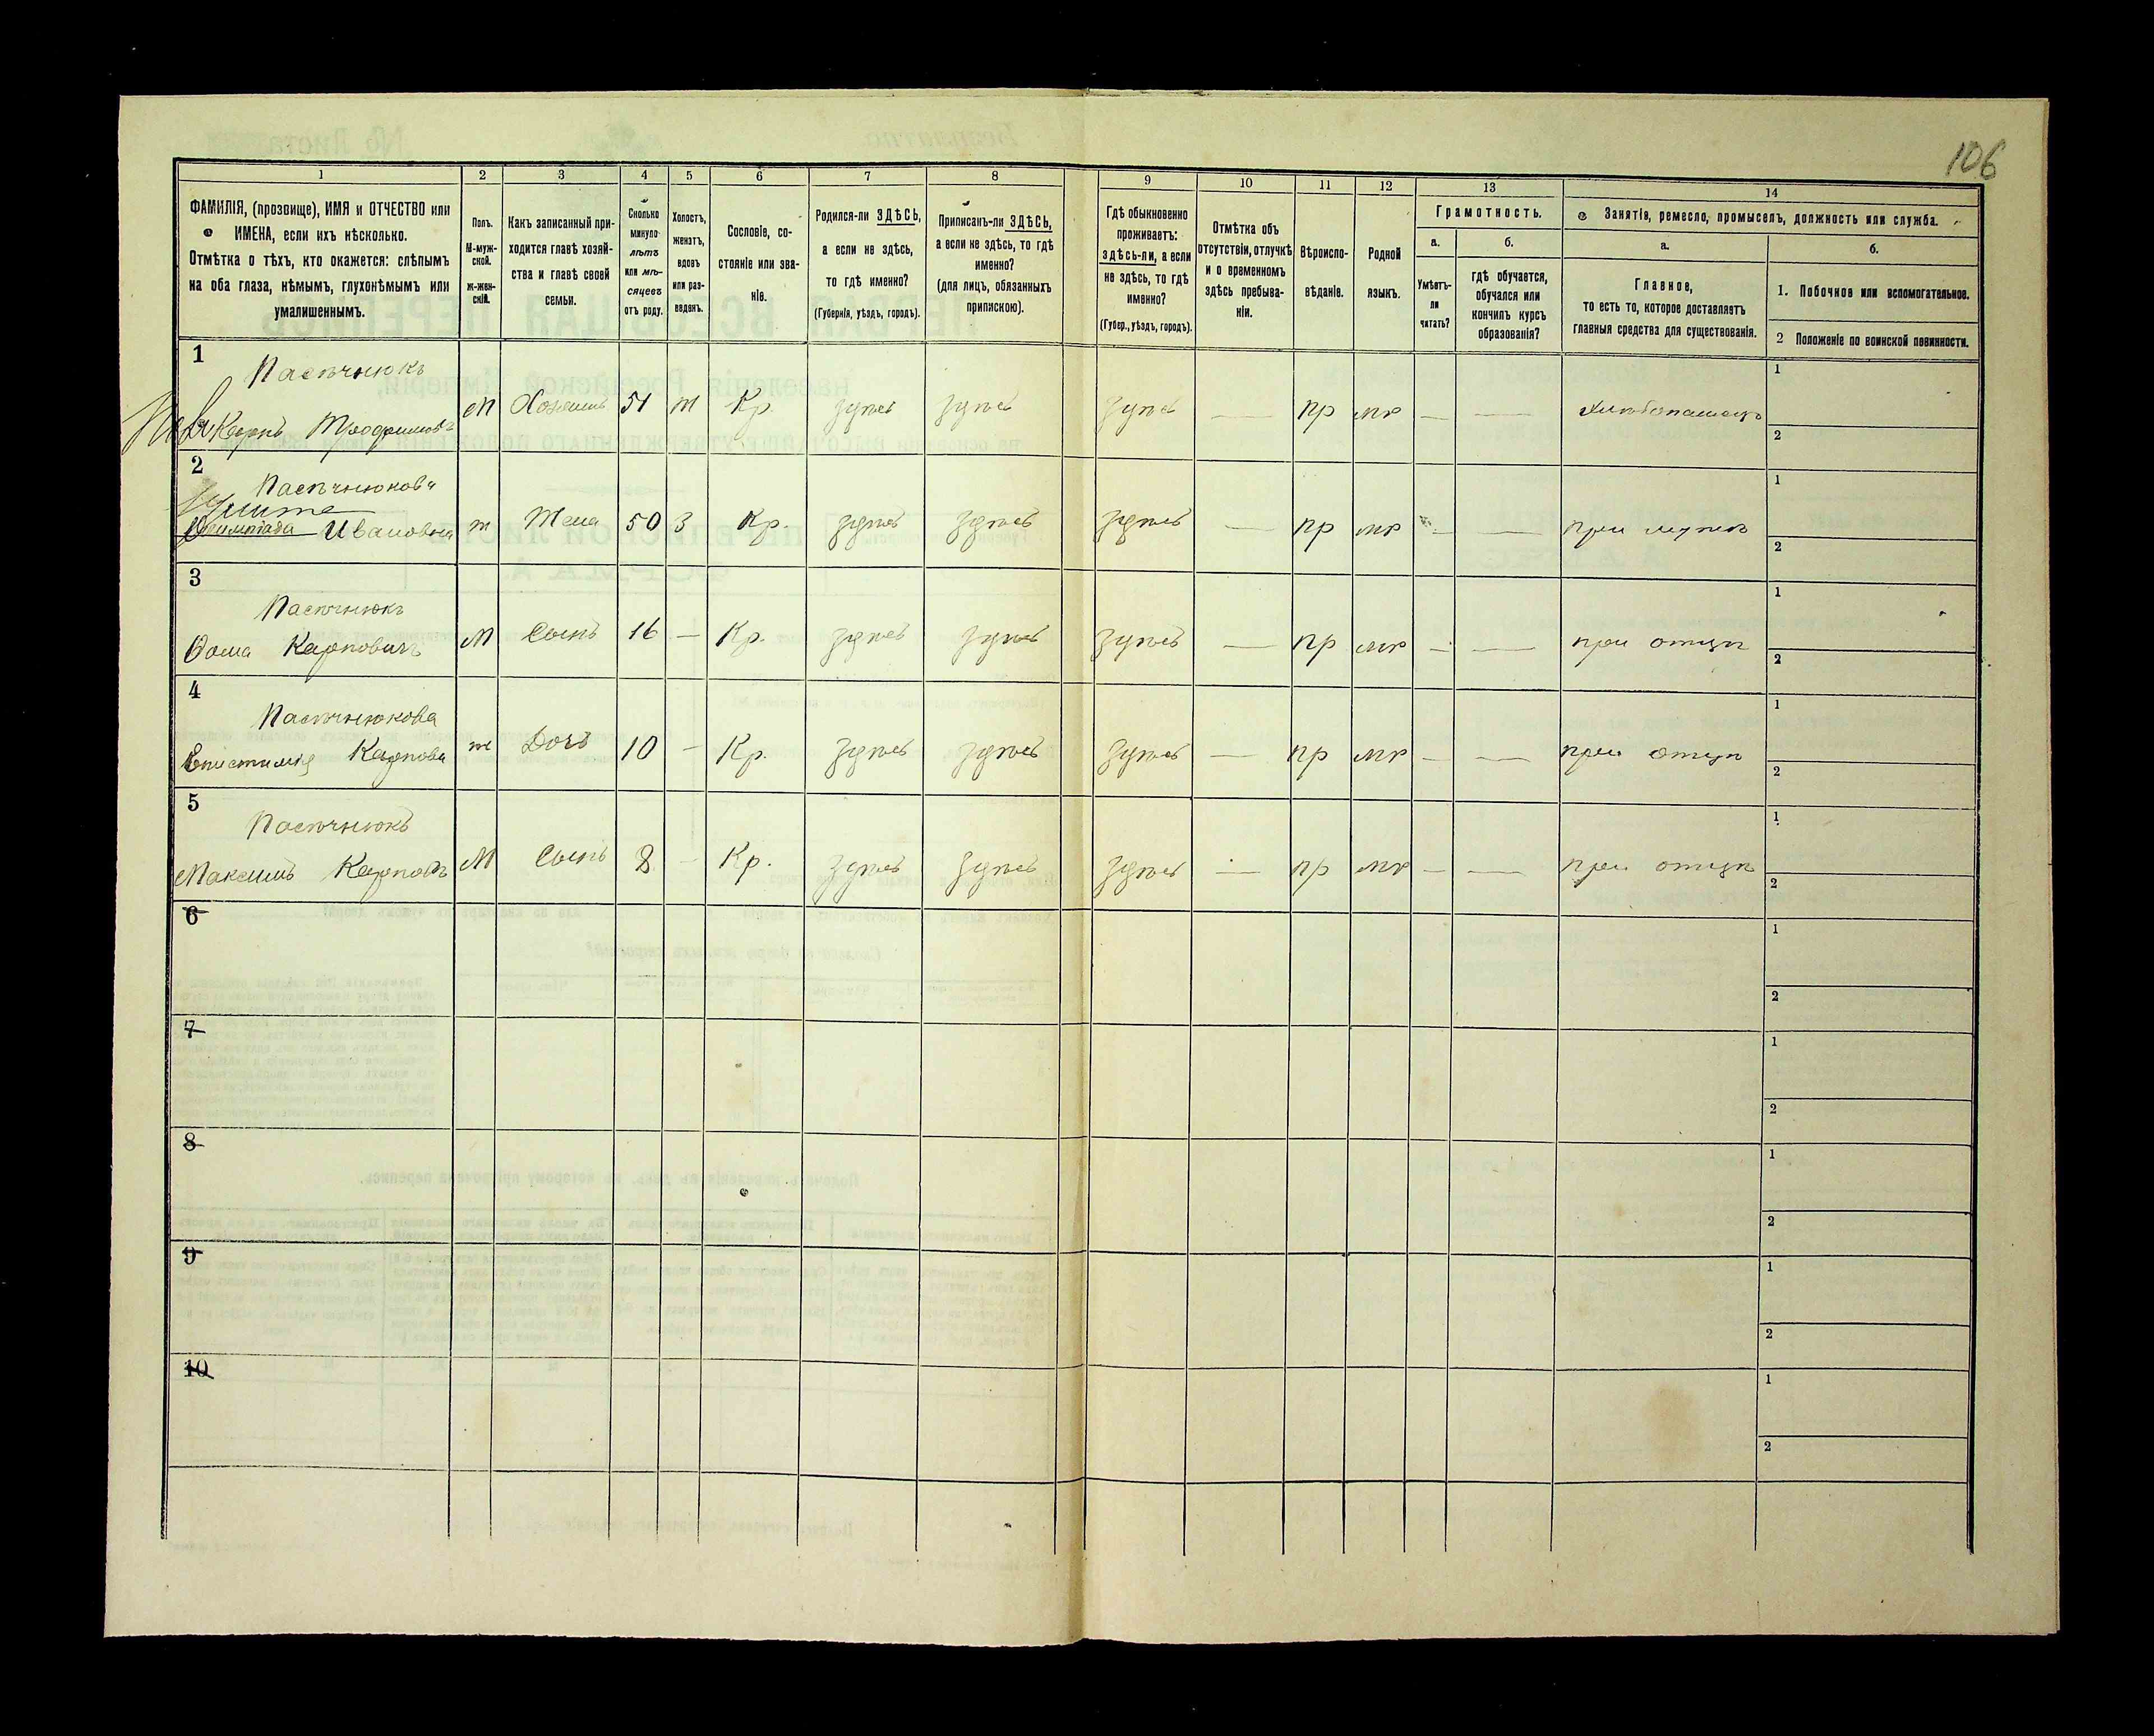 106
1
2
3
4
5
6
7
8
9
10
11
12
13
14
ФАМИЛІЯ, (прозвище), ИМЯ и ОТЧЕСТВО или
ИМЕНА, если ихъ нѣсколько.
Отмѣтка о тѣхъ, кто окажется: слѣпымъ
на оба глаза, нѣмымъ, глухонѣмымъ или
умалишеннымъ.
Полъ.
М-муж-
ской.
ж-жен-
скій.
Какъ записанный при-
ходится главѣ хозяй-
ства и главѣ своей
семьи.
Сколько
минуло
лѣтъ
или мѣ-
сяцевъ
отъ роду.
Холостъ,
женатъ,
вдовъ
или раз-
веденъ.
Сословіе, со-
стояніе или зва-
ніе.
Родился-ли ЗДѢСЬ,
а если не здѣсь,
то гдѣ именно?
(Губернія, уѣздъ, городъ).
Приписанъ-ли ЗДѢСЬ,
а если не здѣсь, то гдѣ
именно?
(для лицъ, обязанныхъ
припискою).
Гдѣ обыкновенно
проживаетъ:
здѣсь-ли, а если
не здѣсь, то гдѣ
именно?
(Губер., уѣздъ, городъ).
Отмѣтка объ
отсутствіи, отлучкѣ
и о временномъ
здѣсь пребыва-
ніи.
Вѣроиспо-
вѣданіе.
Родной
языкъ.
Грамотность.
а.
Умѣетъ-
ли
читать?
б.
гдѣ обучается,
обучался или
кончилъ курсъ
образованія?
Занятія, ремесло, промыселъ, должность или служба.
а.
Главное,
то есть то, которое доставляетъ
главныя средства для существованія.
б.
1. Побочное или вспомогательное.
2 Положеніе по воинской повинности.
1
Пасѣчнюкъ
Карпъ Трофимовъ
М Хозяинъ 51 ж Кр. здѣсь здѣсь здѣсь — пр мр — — хлѣбопашецъ
1
2
2
Пасѣчнюкова
Олимпіада Ивановна
ж Жена 50 з Кр. здѣсь здѣсь здѣсь — пр мр — — при мужѣ
1
2
3
Пасѣчнюкъ
Ѳома Карповичъ
М Сынъ 16 — Кр. здѣсь здѣсь здѣсь — пр мр — — при отцѣ
1
2
4
Пасѣчнюкова
Епистимія Карпова
ж Дочь 10 — Кр. здѣсь здѣсь здѣсь — пр мр — — при отцѣ
1
2
5
Пасѣчнюкъ
Максимъ Карповъ
М Сынъ 8 — Кр. здѣсь здѣсь здѣсь — пр мр — — при отцѣ
1
2
6
1
2
7
1
2
8
1
2
9
1
2
10
1
2